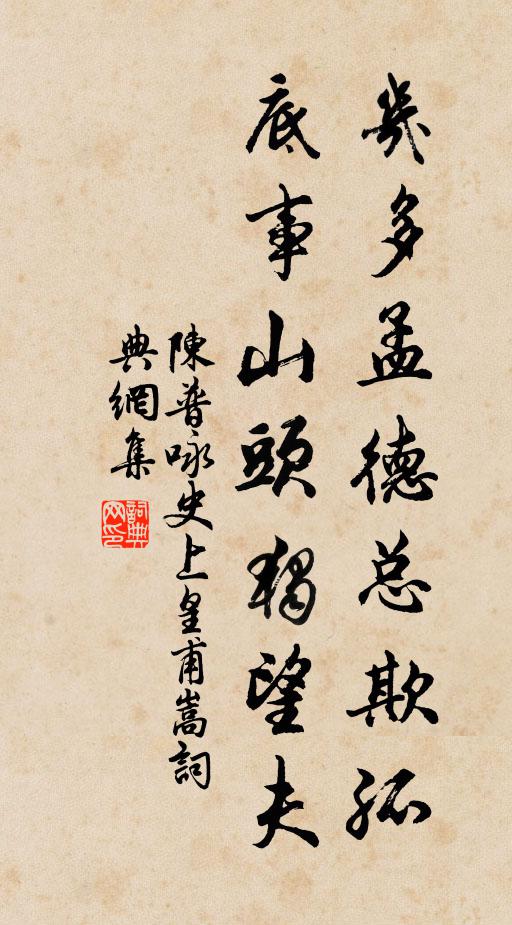 幾多孟德总欺孤
底事山頭獨望夫
陳普咏史上皇甫嵩詞
典網集
詞典网印